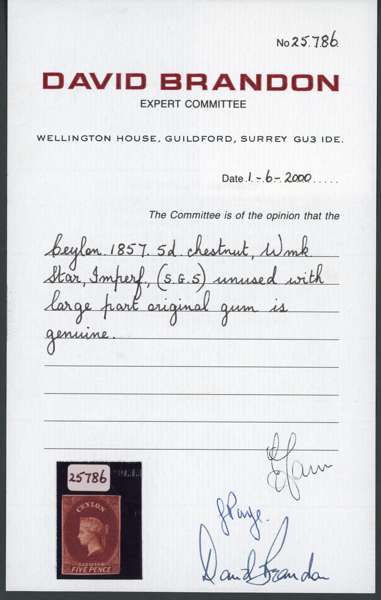 No 25.786.
DAVID BRANDON
EXPERT COMMITTEE
WELLINGTON HOUSE, GUILDFORD, SURREY GU3 1DE.
Date 1-6-2000.....
The Committee is of the opinion that the
Ceylon. 1857. 5d. chestnut, Wmk
Star, Imperf., (S.G.5) unused with
large part original gum is
genuine.
25786
CEYLON
FIVE PENCE
David Brandon